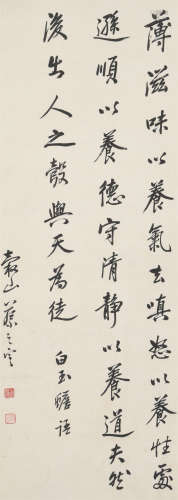 薄滋味以養氣去嗔怒以養性處
遜順以養德守清靜以養道夫然
後出人之彀與天為徒
白玉蟾語